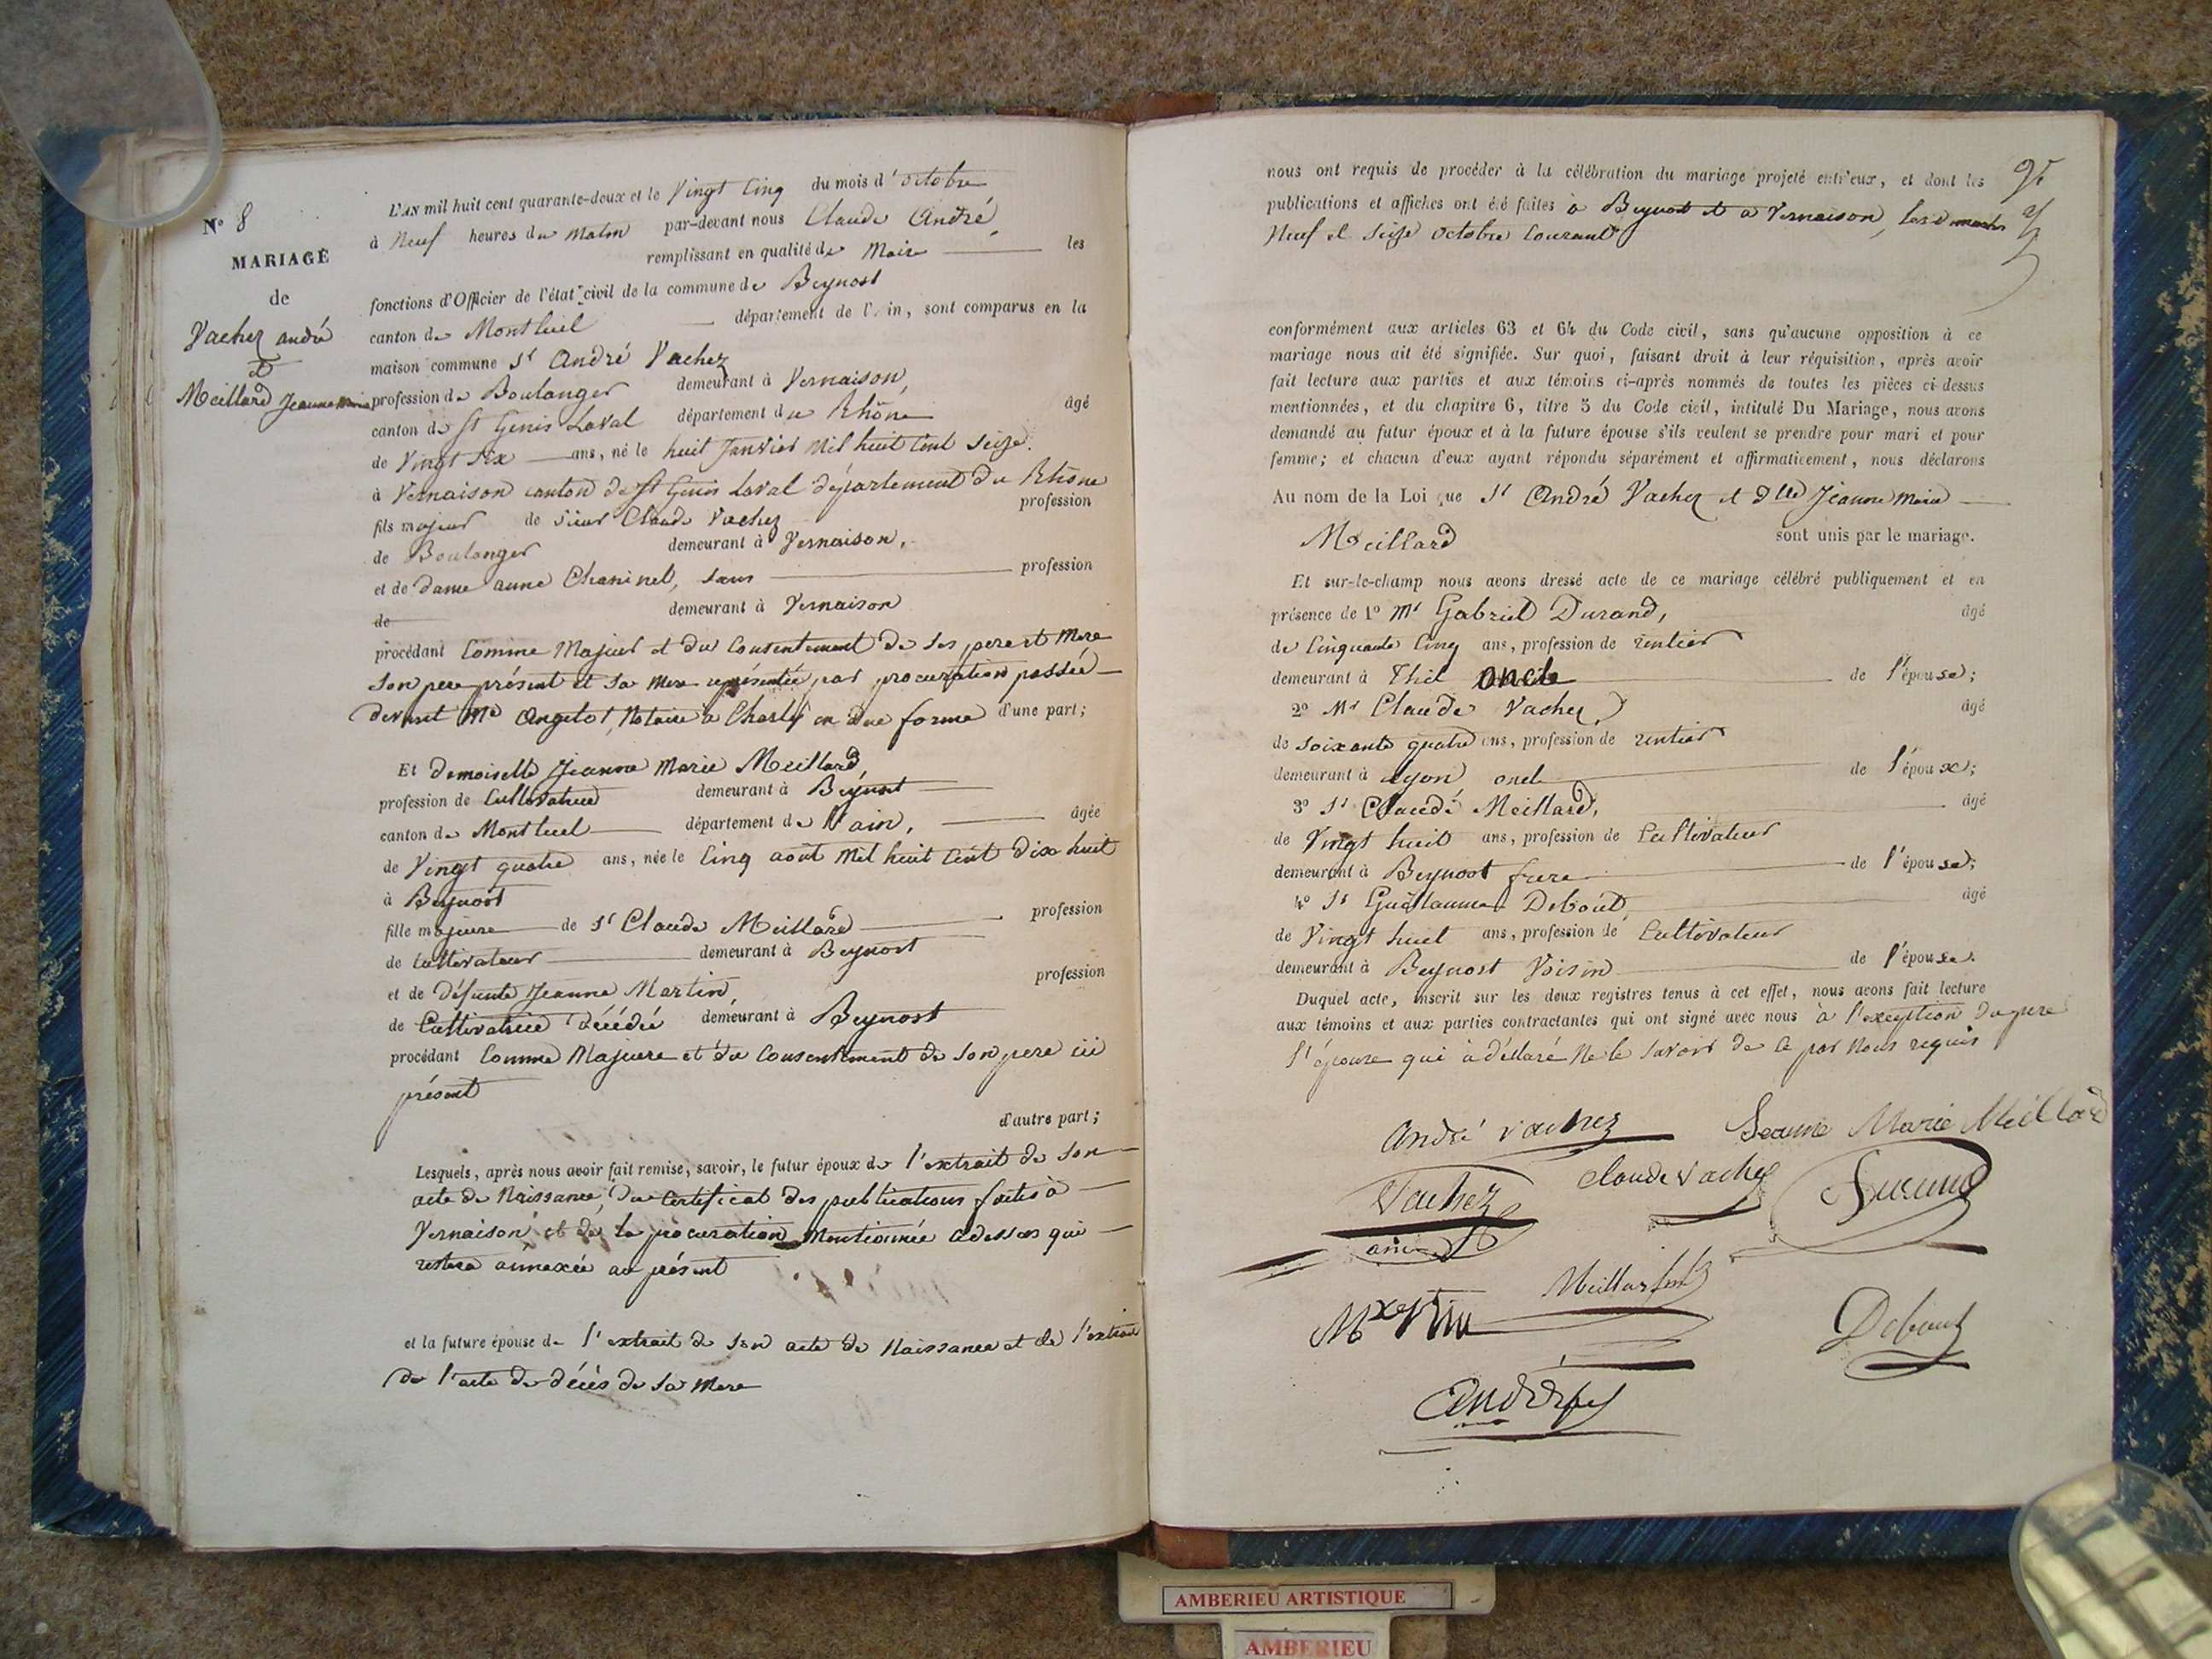 N° 8
MARIAGE
de
Vachez andré
et
Meillard Jeanne Marie
L'AN mil huit cent quarante-deux et le Vingt Cinq du mois d'octobre
à Neuf heures du Matin par-devant nous Claude André,
remplissant en qualité de Maire les
fonctions d'Officier de l'état civil de la commune de Beynost
canton de Montluel département de l'Ain, sont comparus en la
maison commune Sr André Vachez
profession de Boulanger demeurant à Vernaison,
canton de St Genis Laval département du Rhône âgé
de Vingt Six ans, né le huit Janvier Mil huit Cent Seize.
à Vernaison canton de St Genis Laval département du Rhône
fils majeur de Sieur Claude Vachez profession
de Boulanger demeurant à Vernaison,
et de dame anne Chaninel, sans profession
de demeurant à Vernaison
procédant Comme Majeur et du Consentement de Ses pere et Mere
Son pere présent et Sa Mere représentée par procuration passée
devant Me Angelot, Notaire à Charly en due forme d'une part;
Et demoiselle Jeanne Marie Meillard,
profession de Cultivatrice demeurant à Beynost
canton de Montluel département de l'ain, âgée
de Vingt quatre ans, née le Cinq août Mil huit Cent Dix huit
à Beynost
fille majeure de Sr Claude Meillard profession
de Cultivateur demeurant à Beynost
et de défunte Jeanne Martin, profession
de Cultivatrice décédée demeurant à Beynost
procédant Comme Majeure et du Consentement de Son pere ici
présent
d'autre part;
Lesquels, après nous avoir fait remise, savoir, le futur époux de l'extrait de Son
acte de Naissance, du Certificat des publications faites à
Vernaison et de la procuration Mentionnée Cidessus qui
restera annexée au présent
et la future épouse de l'extrait de Son acte de Naissance et de l'extrait
de l'acte de décès de Sa Mere
nous ont requis de procéder à la célébration du mariage projeté entr'eux, et dont les
publications et affiches ont été faites à Beynost et à Vernaison, les dimanches
Neuf et Seize octobre Courant
conformément aux articles 63 et 64 du Code civil, sans qu'aucune opposition à ce
mariage nous ait été signifiée. Sur quoi, faisant droit à leur réquisition, après avoir
fait lecture aux parties et aux témoins ci-après nommés de toutes les pièces ci-dessus
mentionnées, et du chapitre 6, titre 5 du Code civil, intitulé Du Mariage, nous avons
demandé au futur époux et à la future épouse s'ils veulent se prendre pour mari et pour
femme; et chacun d'eux ayant répondu séparément et affirmativement, nous déclarons
Au nom de la Loi que Sr André Vachez et Dlle Jeanne Marie
Meillard sont unis par le mariage.
Et sur-le-champ nous avons dressé acte de ce mariage célébré publiquement et en
présence de 1° Mr Gabriel Durand, âgé
de Cinquante Cinq ans, profession de rentier
demeurant à Thil oncle de l'épouse;
2° Mr Claude Vachez, âgé
de Soixante quatre ans, profession de rentier
demeurant à Lyon oncle de l'époux;
3° Sr Claude Meillard, âgé
de Vingt huit ans, profession de Cultivateur
demeurant à Beynost frere de l'épouse;
4° Sr Guillaume Debout âgé
de Vingt huit ans, profession de Cultivateur
demeurant à Beynost Voisin de l'épouse.
Duquel acte, inscrit sur les deux registres tenus à cet effet, nous avons fait lecture
aux témoins et aux parties contractantes qui ont signé avec nous à l'exception du pere
l'épouse qui a déclaré Ne le Savoir de Ce par Nous requis
André Vachez Jeanne Marie Meillard
Vachez claude Vachez Durand
ainé
Meillard
Debout
André
AMBERIEU ARTISTIQUE
AMBERIEU